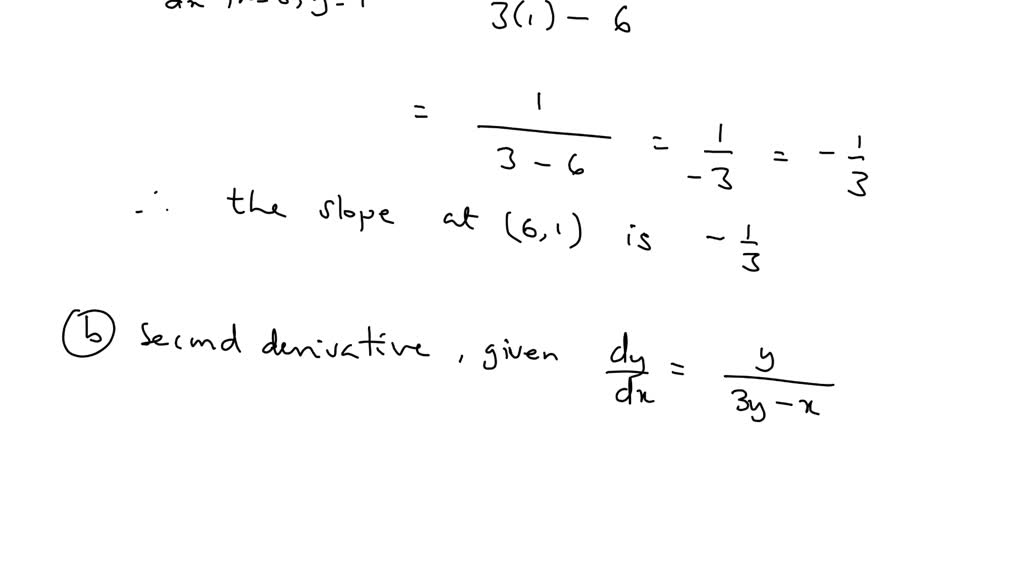 3(1) - 6
= 1 / (3 - 6) = 1 / -3 = - 1/3
∴ the slope at (6,1) is - 1/3
(b) Second derivative, given dy/dx = y / (3y - x)